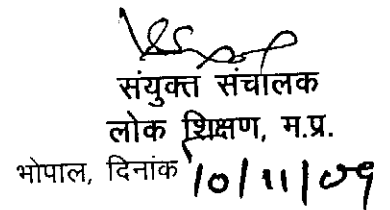 संयुक्त संचालक
लोक शिक्षण, म.प्र.
भोपाल, दिनांक 10/11/09